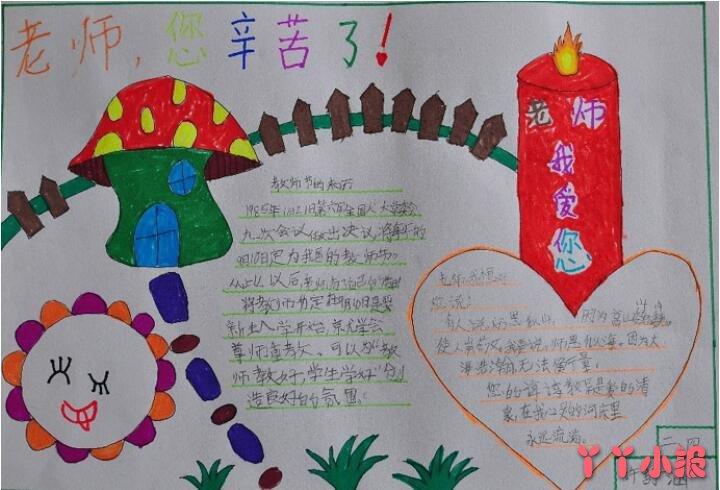 老师，您辛苦了！
老师
我
爱
您
教师节的来历
1985年1月21日第六届全国人大常委会
九次会议做出决议，将每年的
9月10日定为我国的教师节。
从此以后，老师有了自己的节日
将教师节定在9月10日是
新生入学开始
尊师重教 可以为“教
师教好，学生学好”创
造良好的氛围。
老师我想
您说：
有人说师恩如山，因为高山
使人崇 我要说，师恩似海，因为大
海浩 无法 量。
您的谆谆教 是我的清
泉，在我 的河床里
永远流淌。
二、四
丫丫小报